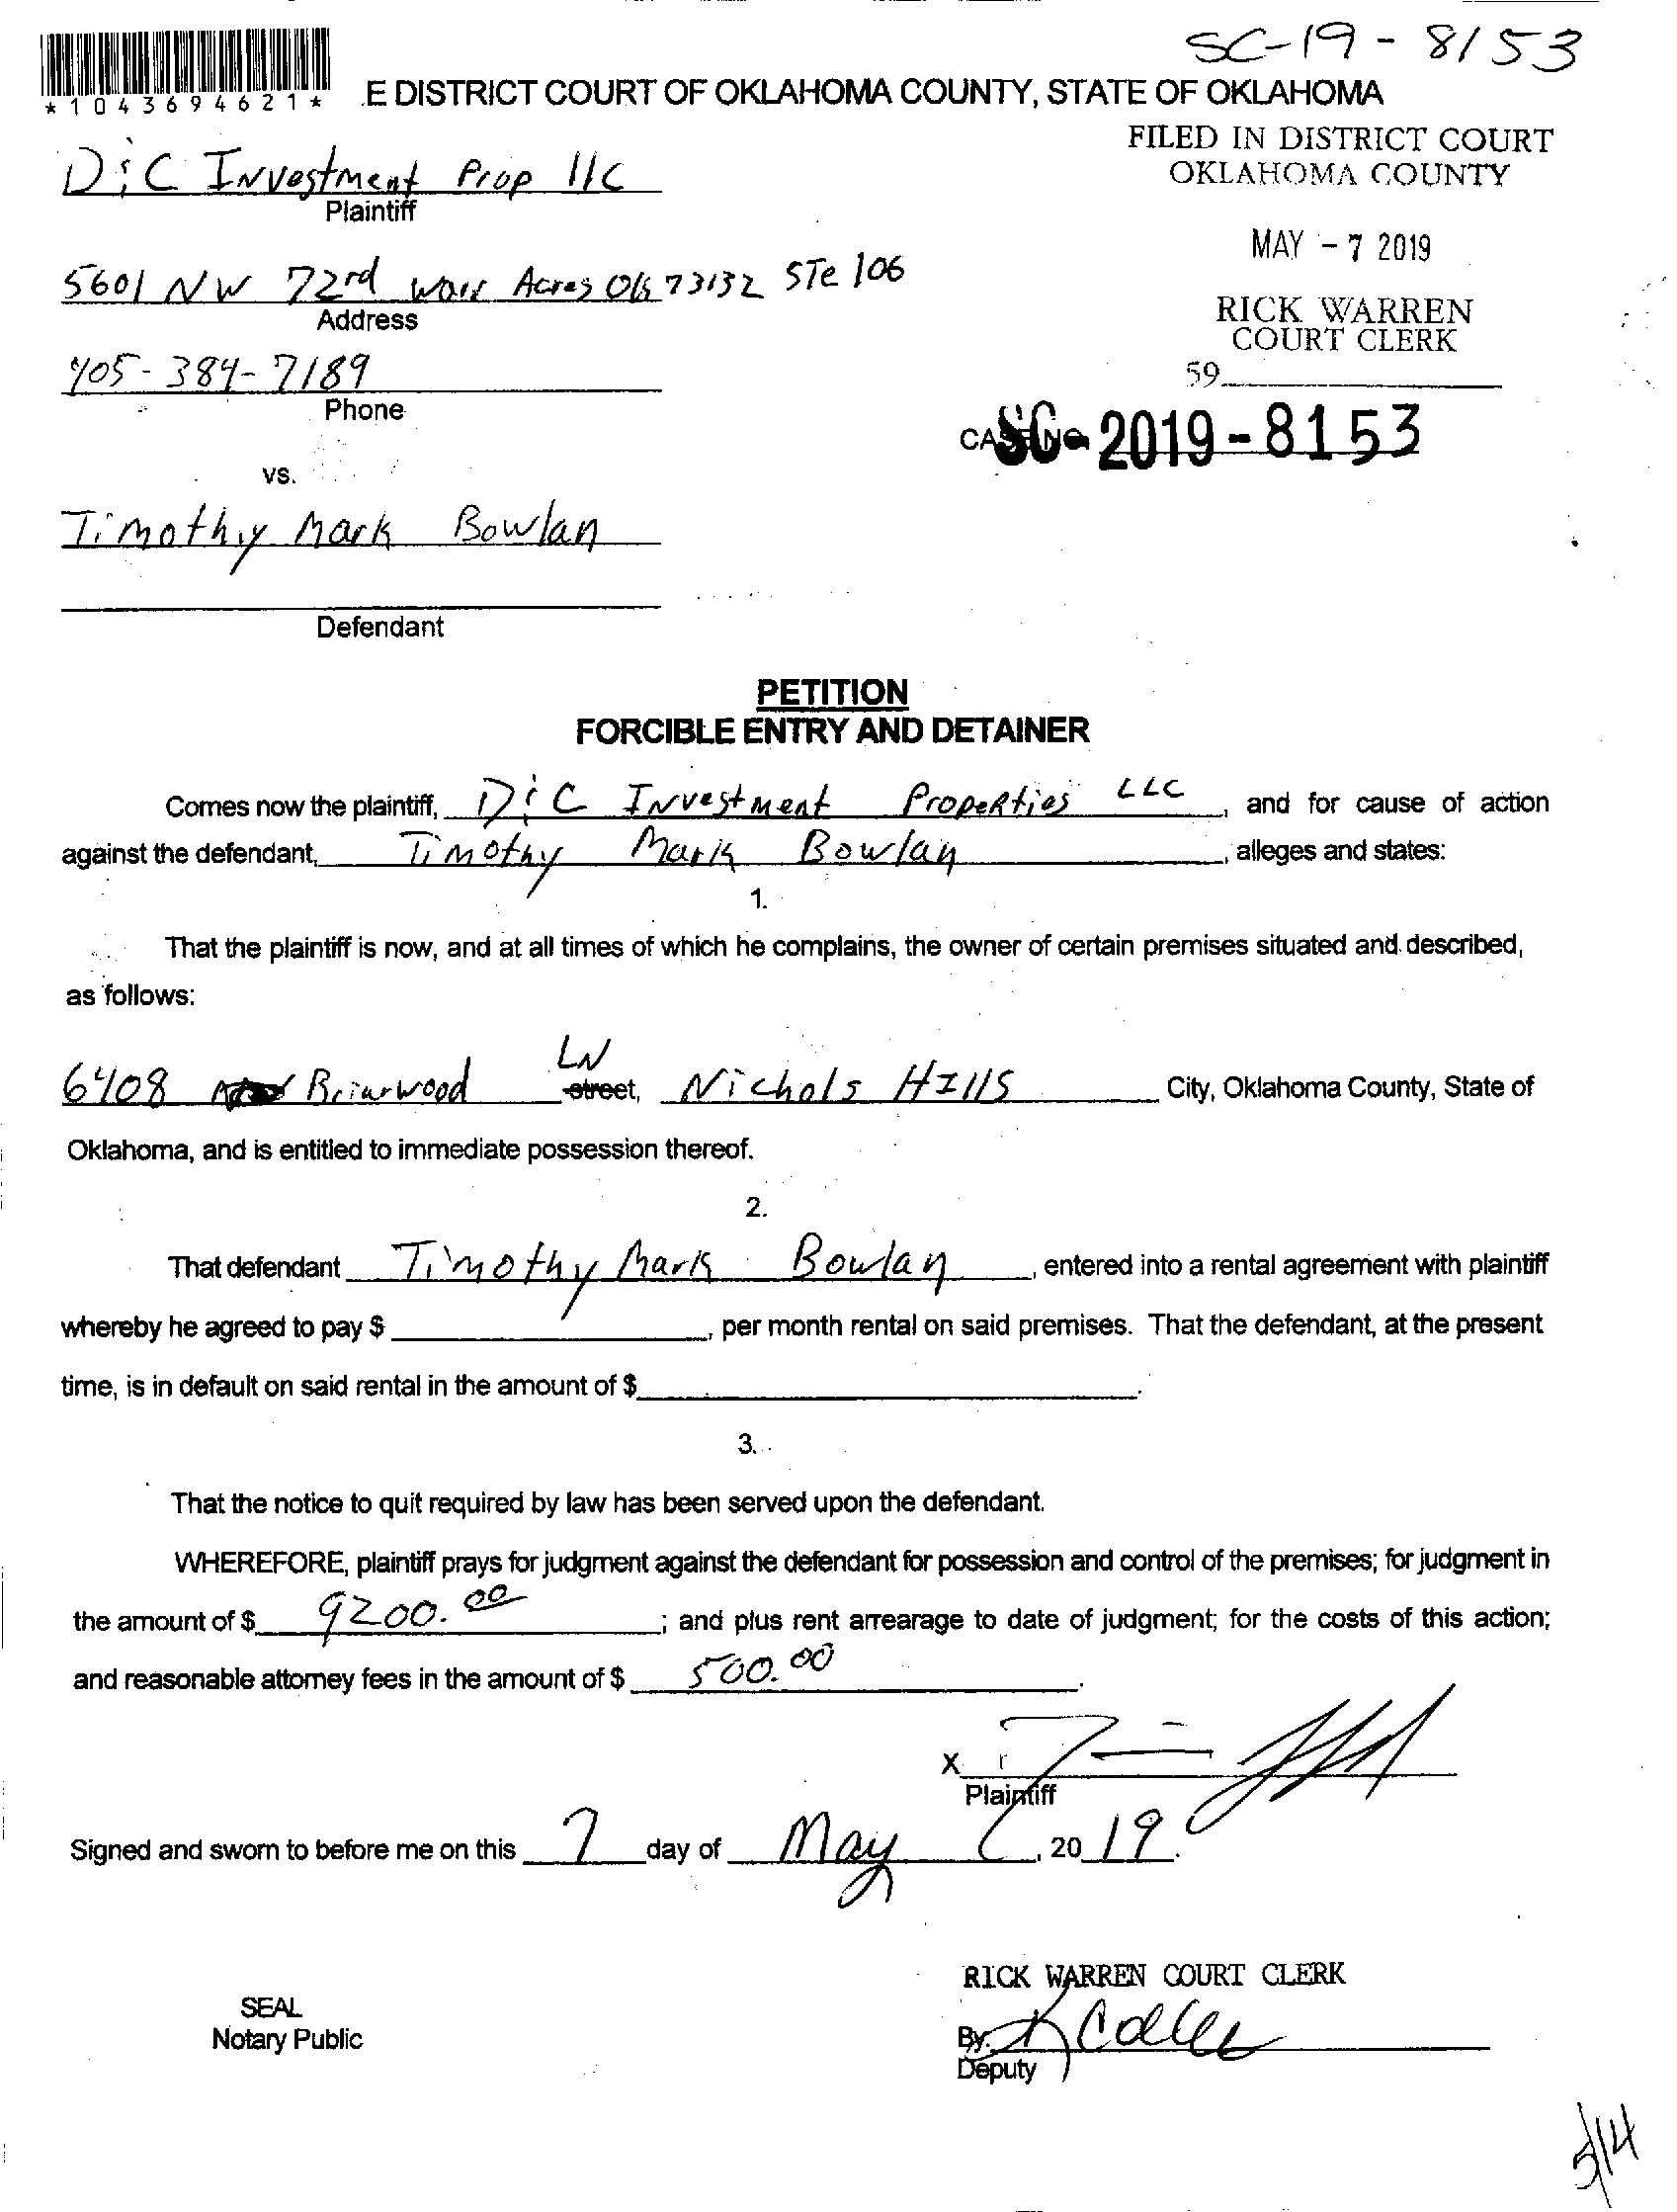 SC-19-8153
*1043694621*
E DISTRICT COURT OF OKLAHOMA COUNTY, STATE OF OKLAHOMA
FILED IN DISTRICT COURT
OKLAHOMA COUNTY
DiC Investment Prop llc
Plaintiff
MAY - 7 2019
5601 NW 72rd Warr Acres Ok 73132 STe 106
Address
RICK WARREN
COURT CLERK
405-384-7189
59
Phone
CASE NO. SC-2019-8153
vs.
Timothy Mark Bowlan
Defendant
PETITION
FORCIBLE ENTRY AND DETAINER
Comes now the plaintiff, DiC Investment Properties LLC, and for cause of action
against the defendant, Timothy Mark Bowlan, alleges and states:
1.
That the plaintiff is now, and at all times of which he complains, the owner of certain premises situated and described,
as follows:
6408 Briarwood LN street, Nichols Hills City, Oklahoma County, State of
Oklahoma, and is entitled to immediate possession thereof.
2.
That defendant Timothy Mark Bowlan, entered into a rental agreement with plaintiff
whereby he agreed to pay $, per month rental on said premises. That the defendant, at the present
time, is in default on said rental in the amount of $.
3.
That the notice to quit required by law has been served upon the defendant.
WHEREFORE, plaintiff prays for judgment against the defendant for possession and control of the premises; for judgment in
the amount of $ 9200.00; and plus rent arrearage to date of judgment; for the costs of this action;
and reasonable attorney fees in the amount of $ 500.00.
X
Plaintiff
Signed and sworn to before me on this 7 day of May, 2019.
RICK WARREN COURT CLERK
SEAL
Notary Public
By:
Deputy
5/14